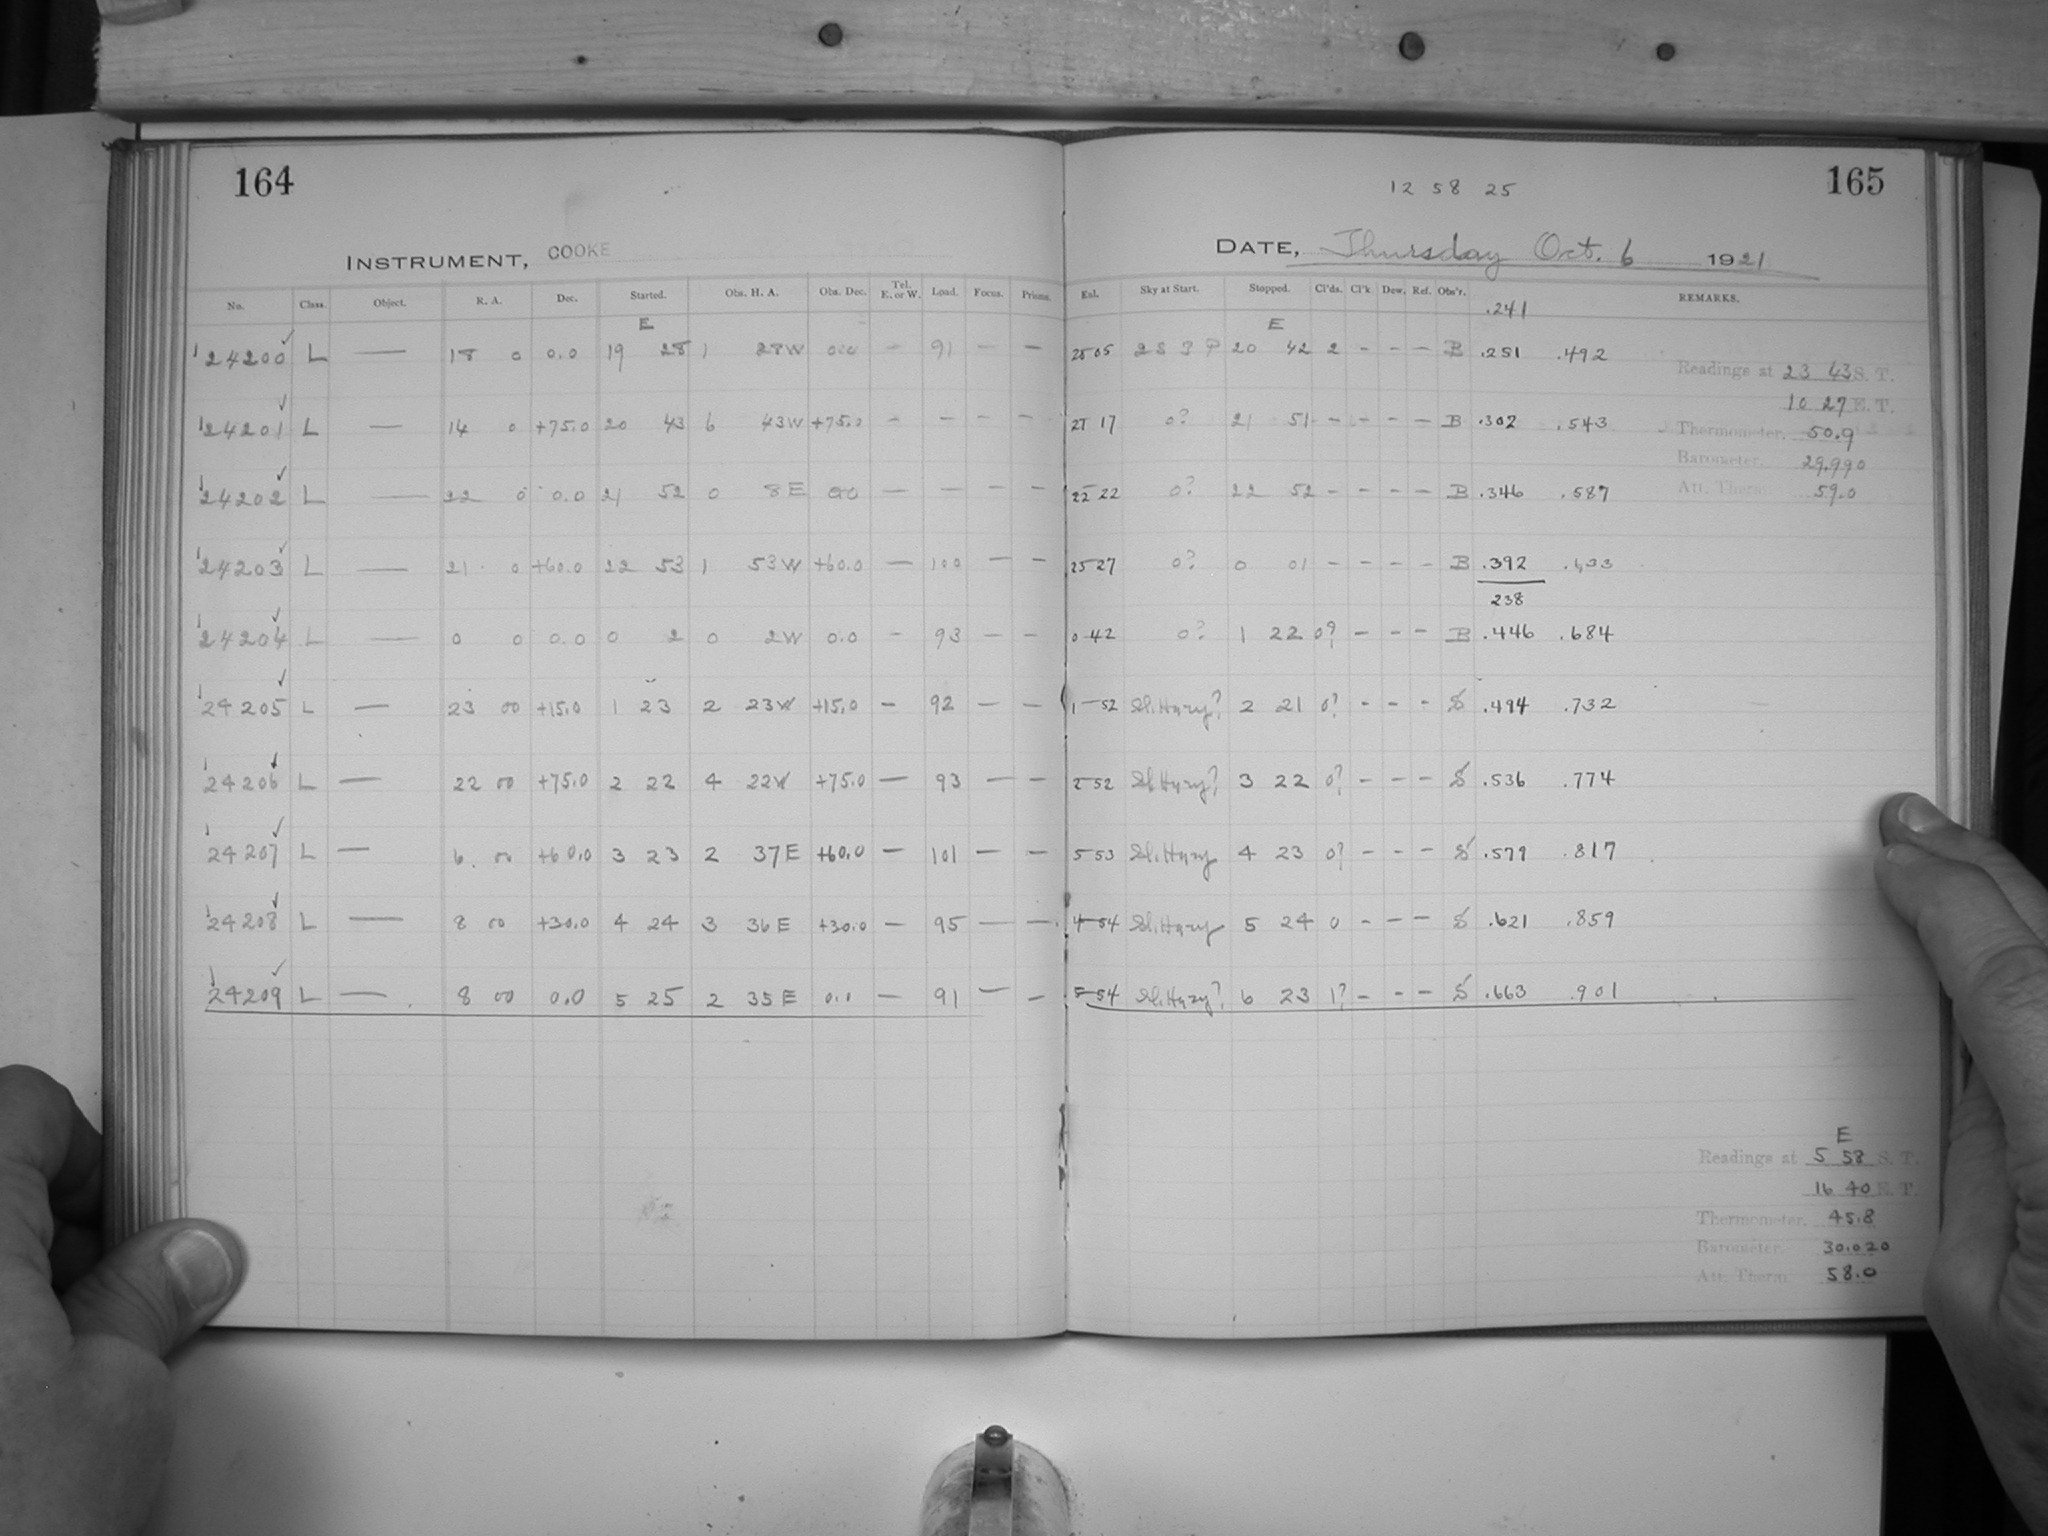 164
165
12 58 25
INSTRUMENT, COOKE
DATE, Thursday Oct. 6 1921
No. Class. Object. R. A. Dec. Started. Obs. H. A. Obs. Dec. Tel. E. or W. Load. Focus. Prisms. Enl. Sky at Start. Stopped. Cl'ds. Cl'k Dew. Ref. Obs'r. REMARKS.
.241
E E
24200 L — 18 0 0.0 19 28 1 28W 0.0 — 91 — — 20 42 2 - - - B .251 .492
24201 L — 14 0 +75.0 20 43 6 43W +75.0 — — — — 21 17 0? 21 51 - - - - B .302 .543
24202 L — 22 0 0.0 21 52 0 8E 0.0 — — — — 22 22 0? 22 52 - - - - B .346 .587
24203 L — 21 0 +60.0 22 53 1 53W +60.0 — 100 — — 23 27 0? 0 01 - - - - B .392 .633
238
24204 L — 0 0 0.0 0 2 0 2W 0.0 — 93 — — 0 42 0? 1 22 0? - - - B .446 .684
24205 L — 23 00 +15.0 1 23 2 23W +15.0 — 92 — — 1 52 Sl. Hazy? 2 21 0? - - - S .494 .732
24206 L — 22 00 +75.0 2 22 4 22W +75.0 — 93 — — 2 52 Sl. Hazy? 3 22 0? - - - S .536 .774
24207 L — 6 00 +60.0 3 23 2 37E +60.0 — 101 — — 53 Sl. Hazy 4 23 0? - - - S .579 .817
24208 L — 8 00 +30.0 4 24 3 36E +30.0 — 95 — — 4 54 Sl. Hazy 5 24 0 - - - S .621 .859
24209 L — 8 00 0.0 5 25 2 35E 0.0 — 91 — — 5 54 Sl. Hazy? 6 23 1? - - - S .663 .901
Readings at 23 43 S. T.
10 27 E. T.
Thermometer, 50.9
Barometer, 29.990
Att. Therm. 59.0
E
Readings at 5 58 S. T.
16 40 E. T.
Thermometer, 45.8
Barometer, 30.020
Att. Therm. 58.0